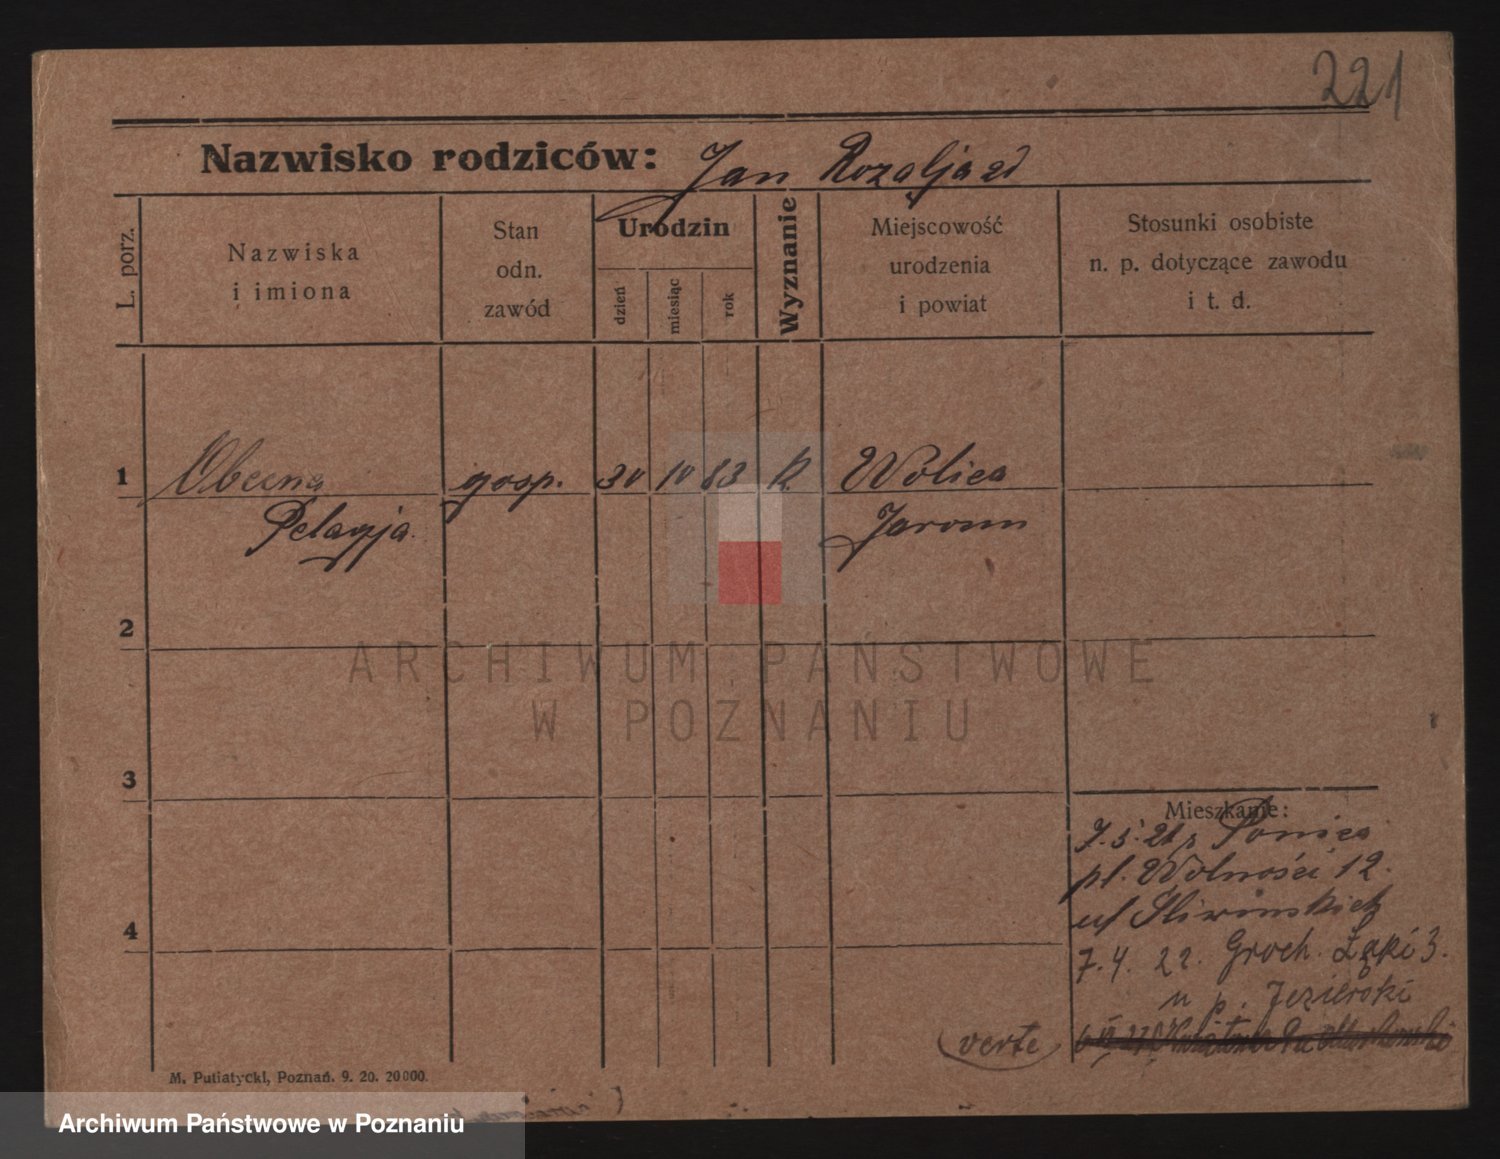 221
Nazwisko rodziców: Jan Rozalja
L. porz.
Nazwiska
i imiona
Stan
odn.
zawód
Urodzin
dzień
miesiąc
rok
Wyznanie
Miejscowość
urodzenia
i powiat
Stosunki osobiste
n. p. dotyczące zawodu
i t. d.
1 Obecna gosp. 30 10 83 k. Wolica
Pelagja Jarocin
2
ARCHIWUM PAŃSTWOWE
W POZNANIU
3
Mieszkanie:
pl. Wolności 12.
4
7. 4. 22. Groch. Łąki 3.
u p. Jezierski
(verte)
M. Putiatycki, Poznań. 9. 20. 20000.
Archiwum Państwowe w Poznaniu